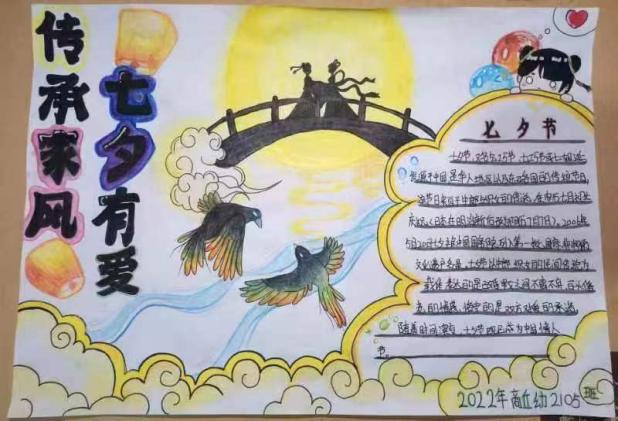 传承家风
七夕有爱
七夕节
七夕节，又名乞巧节，七巧节或七姐诞，
发源于中国，是华人地区以及东亚各国的传统节日，
该节日来自于牛郎与织女的传说，在农历七月初七
庆祝（日本在明治维新后改为阳历7月7日）。2006年
5月20日，七夕被中国国务院列入第一批国家非物质
文化遗产名录，七夕节以牛郎织女的民间传说为
载体，表达的是已婚男女之间不离不弃，白头偕
老的情感，恪守的是双方对爱的承诺。
随着时间演变，七夕节现已成为中国情人
节。
2022年商丘幼2105班